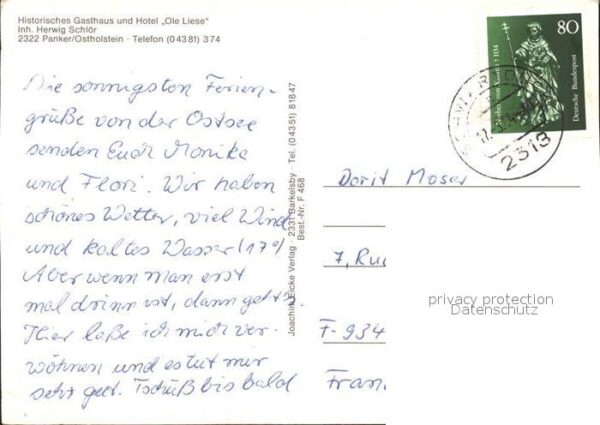 Historisches Gasthaus und Hotel „Ole Liese"
Inh. Herwig Schlör
2322 Panker/Ostholstein · Telefon (0 43 81) 3 74
Die sonnigsten Ferien-
grüße von der Ostsee
senden Euch Monika
und Flori. Wir haben
schönes Wetter, viel Wind
und kaltes Wasser (17°)
Aber wenn man erst
mal drinn ist, dann geht's.
Hier laße ich mich ver-
wöhnen und es tut mir
sehr gut. Tschüß bis bald
Joachim Eicke Verlag · 2331 Barkelsby · Tel. (0 43 51) 8 18 47
Best.-Nr. F 468
80
Deutsche Bundespost
1134
2313
Dorit Moser
7, Rue
F-934
Fran
privacy protection
Datenschutz